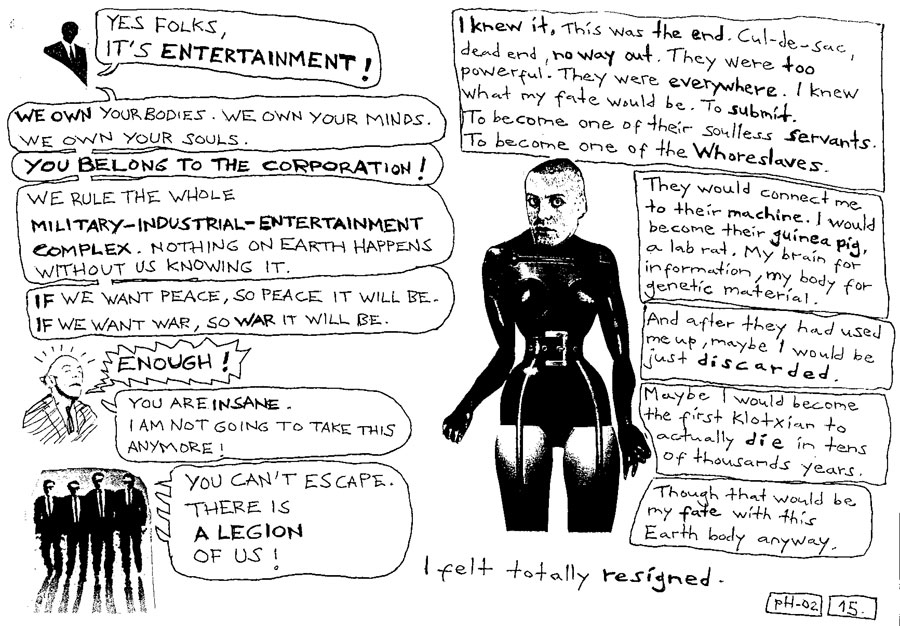 YES FOLKS,
IT'S ENTERTAINMENT!
WE OWN YOUR BODIES. WE OWN YOUR MINDS.
WE OWN YOUR SOULS.
YOU BELONG TO THE CORPORATION!
WE RULE THE WHOLE
MILITARY-INDUSTRIAL-ENTERTAINMENT
COMPLEX. NOTHING ON EARTH HAPPENS
WITHOUT US KNOWING IT.
IF WE WANT PEACE, SO PEACE IT WILL BE.
IF WE WANT WAR, SO WAR IT WILL BE.
ENOUGH!
YOU ARE INSANE.
I AM NOT GOING TO TAKE THIS
ANYMORE!
YOU CAN'T ESCAPE.
THERE IS
A LEGION
OF US!
I knew it. This was the end. Cul-de-sac,
dead end, no way out. They were too
powerful. They were everywhere. I knew
what my fate would be. To submit.
To become one of their soulless servants.
To become one of the Whoreslaves.
They would connect me
to their machine. I would
become their guinea pig,
a lab rat. My brain for
information, my body for
genetic material.
And after they had used
me up, maybe I would be
just discarded.
Maybe I would become
the first Klotxian to
actually die in tens
of thousands years.
Though that would be
my fate with this
Earth body anyway.
I felt totally resigned.
pH-02 15.